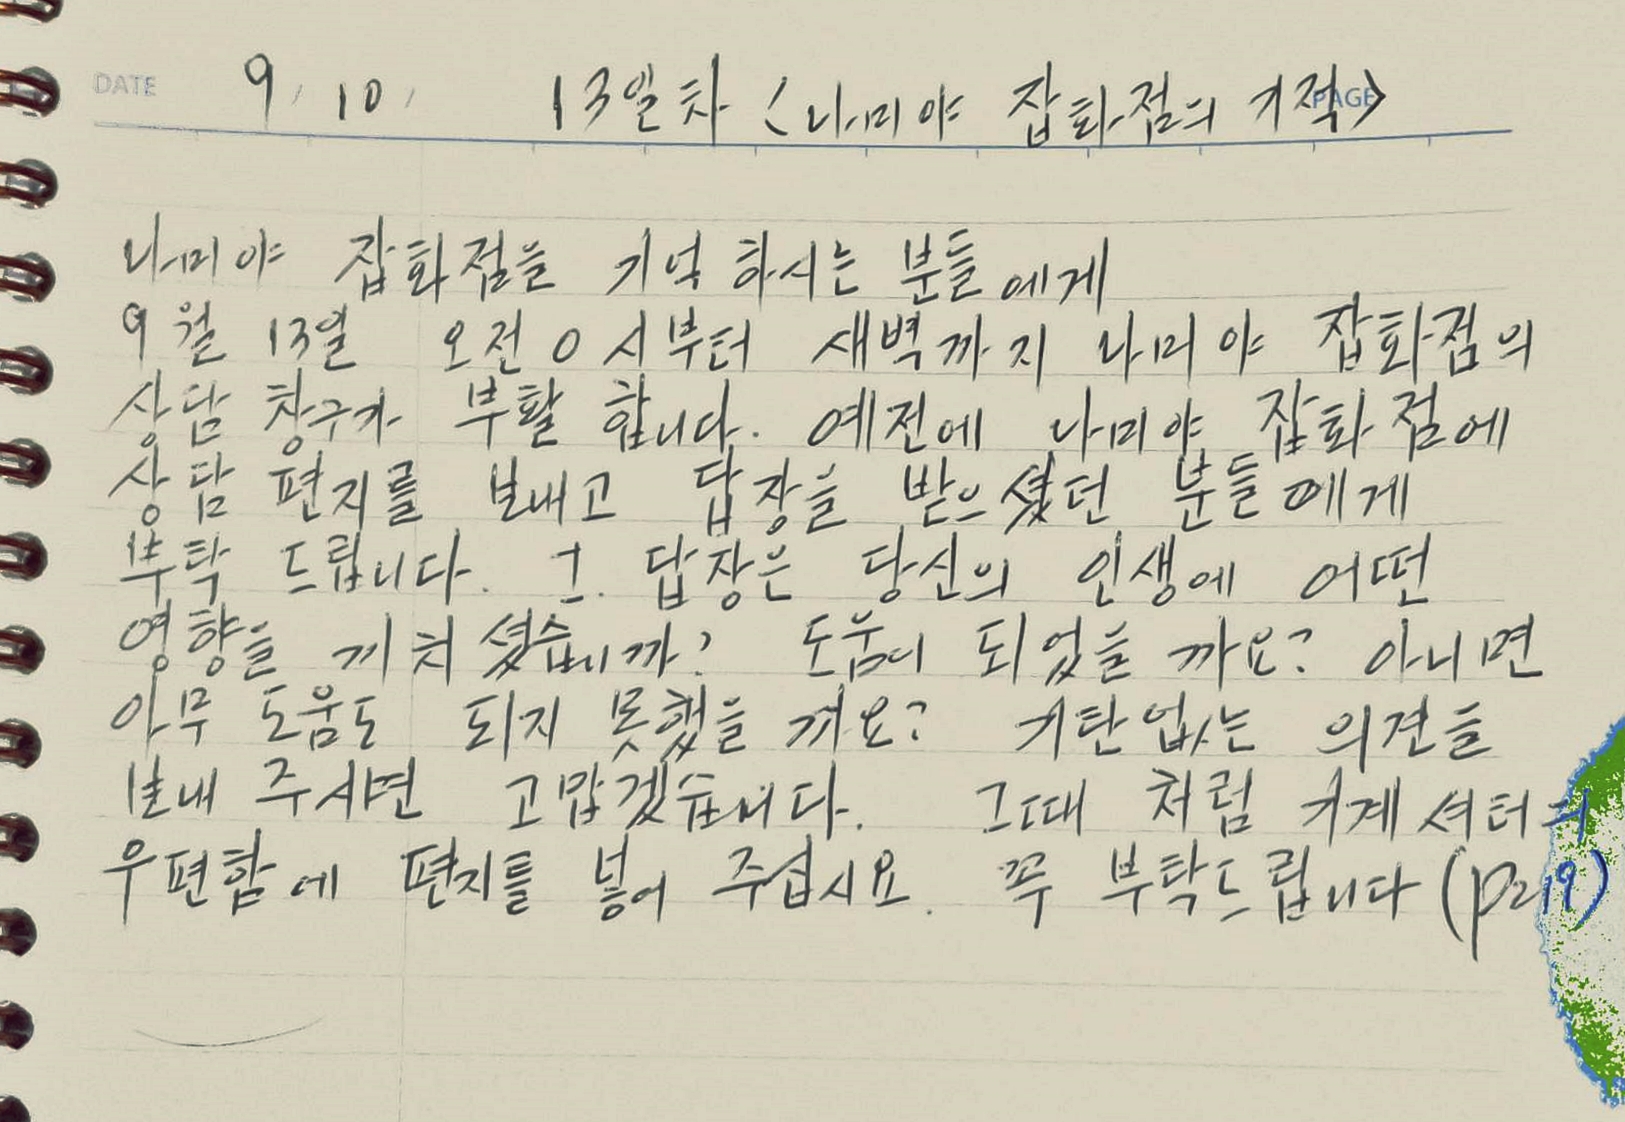 DATE 9, 10, 13일차 <나미야 잡화점의 기적> PAGE
나미야 잡화점을 기억하시는 분들에게
9월 13일 오전 0시부터 새벽까지 나미야 잡화점의
상담 창구가 부활 합니다. 예전에 나미야 잡화점에
상담 편지를 보내고 답장을 받으셨던 분들에게
부탁 드립니다. 그 답장은 당신의 인생에 어떤
영향을 끼치셨습니까? 도움이 되었을까요? 아니면
아무 도움도 되지 못했을까요? 기탄없는 의견들
보내 주시면 고맙겠습니다. 그때 처럼 가게 셔터의
우편함에 편지를 넣어 주십시요. 꼭 부탁드립니다 (p219)